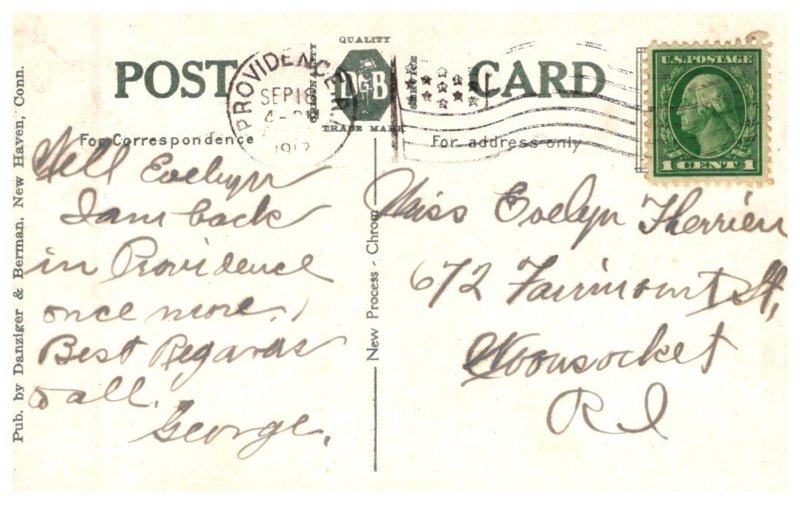 QUALITY
POST CARD
ORIGINALITY
D & B
SERVICE
TRADE MARK
For Correspondence
For address only
PROVIDENCE R.I.
SEP 18
4-
1912
U.S. POSTAGE
1 CENT 1
Well Evelyn
I am back
in Providence
once more.
Best Regards
to all.
George.
Miss Evelyn Therrien
672 Fairmount St,
Woonsocket
R I
New Process - Chrom
Pub. by Danziger & Berman, New Haven, Conn.